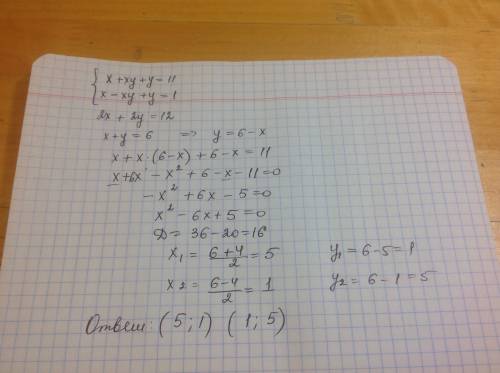 { x + xy + y = 11
x - xy + y = 1
2x + 2y = 12
x + y = 6 => y = 6 - x
x + x · (6 - x) + 6 - x = 11
x + 6x - x² + 6 - x - 11 = 0
- x² + 6x - 5 = 0
x² - 6x + 5 = 0
D = 36 - 20 = 16
x₁ = (6 + 4)/2 = 5 y₁ = 6 - 5 = 1
x₂ = (6 - 4)/2 = 1 y₂ = 6 - 1 = 5
Ответ: (5; 1) (1; 5)